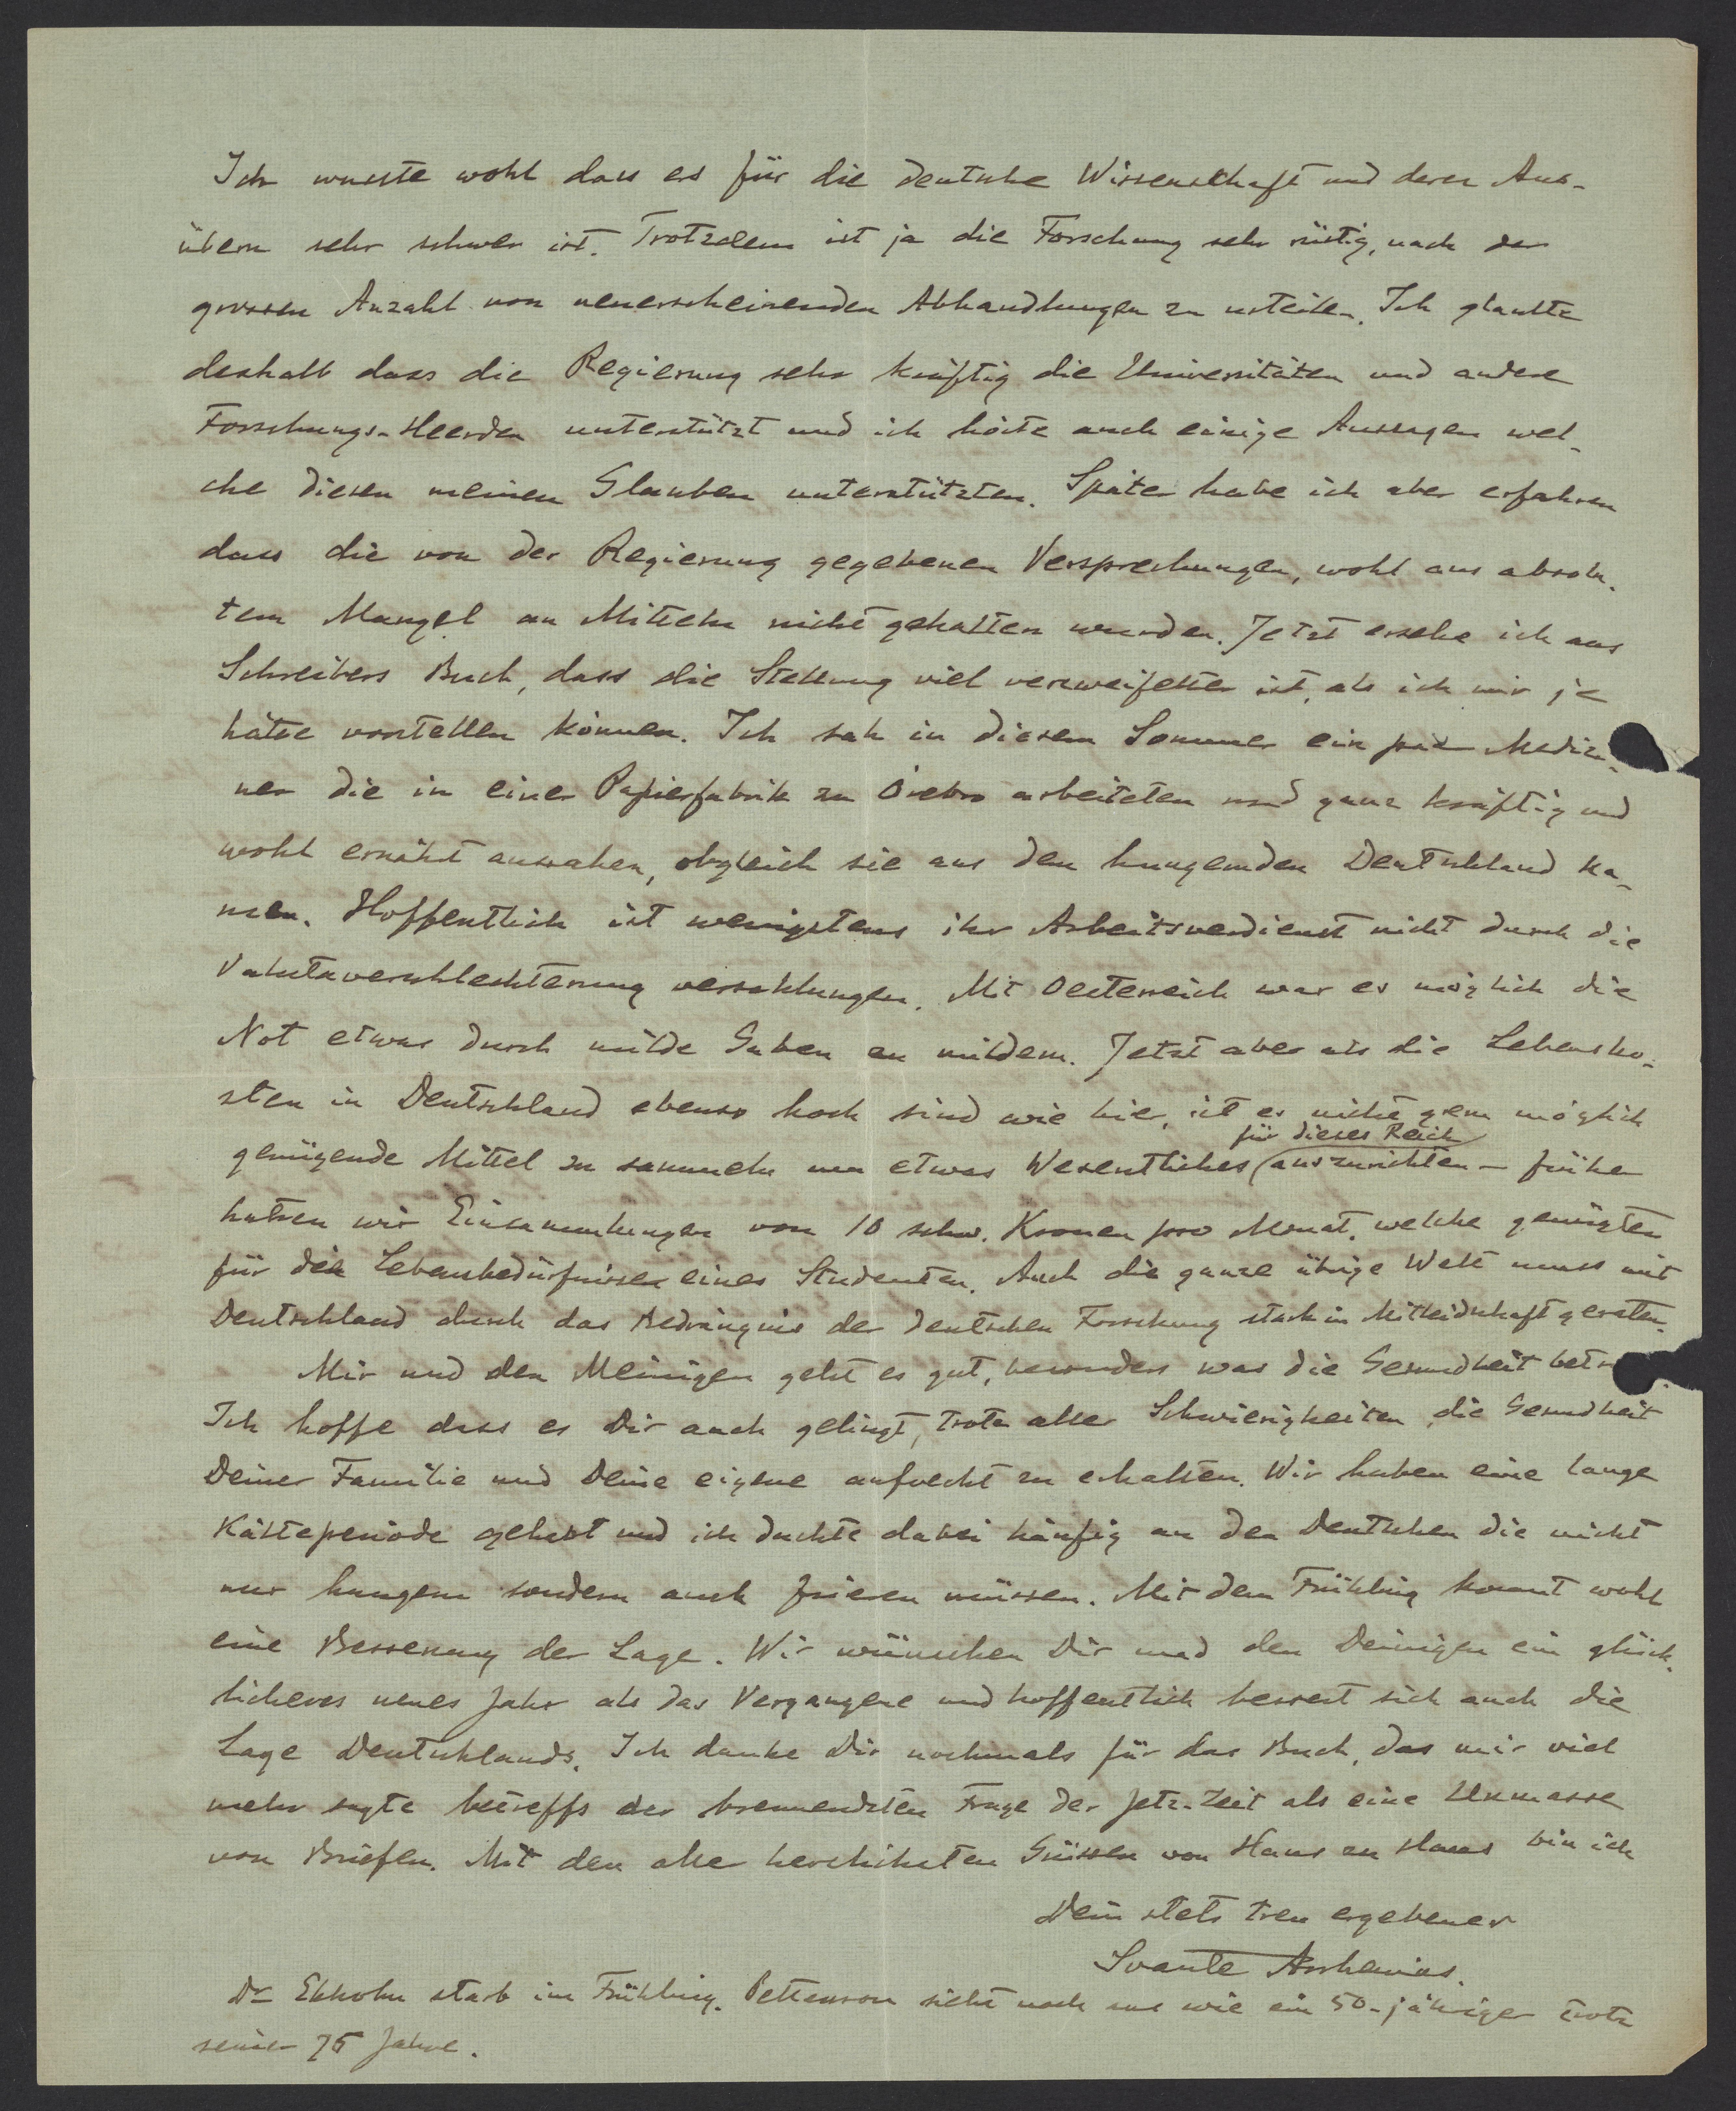 Ich wusste wohl dass es für die deutsche Wissenschaft und deren Aus-
übern sehr schwer ist. Trotzdem ist ja die Forschung sehr rüstig, nach der
grossen Anzahl von neuerscheinenden Abhandlungen zu urteilen. Ich glaubte
deshalb dass die Regierung sehr kräftig die Universitäten und andere
Forschungs-Heerden unterstützt und ich hörte auch einige Aussagen wel-
che diesen meinen Glauben unterstützten. Später habe ich aber erfahren
dass die von der Regierung gegebenen Versprechungen, wohl aus absolu-
tem Mangel an Mitteln nicht gehalten wurden. Jetzt ersehe ich aus
Schreibers Buch, dass die Stellung viel verzweifelter ist, als ich mir je
hätte vorstellen können. Ich sah in diesem Sommer ein paar Medizi-
ner die in einer Papierfabrik zu Örebro arbeiteten und ganz kräftig und
wohl ernährt aussahen, obgleich sie aus den hungernden Deutschland ka-
men. Hoffentlich ist wenigstens ihr Arbeitsverdienst nicht durch die
Valutaverschlechterung verschlungen. Mit Oesterreich war es möglich die
Not etwas durch milde Gaben zu mildern. Jetzt aber als die Lebensko-
sten in Deutschland ebenso hoch sind wie hier, ist es nicht gern möglich
genügende Mittel zu sammeln um etwas Wesentliches (für dieses Reich) auszurichten – früher
hatten wir Einsammlungen von 10 schw. Kronen pro Monat, welche genügten
für die Lebensbedürfnisse eines Studenten. Auch die ganze übrige Welt muss mit
Deutschland durch das Bedrängnis der deutschen Forschung stark in Mitleidschaft geraten.
Mir und den Meinigen geht es gut, besonders was die Gesundheit betr
Ich hoffe dass es Dir auch gelingt, trotz aller Schwierigkeiten die Gesundheit
Deiner Familie und Deine eigene aufrecht zu erhalten. Wir haben eine lange
Kälteperiode gehabt und ich dachte dabei häufig an den Deutschen die nicht
nur hungern sondern auch frieren müssen. Mit dem Frühling kommt wohl
eine Besserung der Lage. Wir wünschen Dir und den Deinigen ein glück-
licheres neues Jahr als das Vergangene und hoffentlich bessert sich auch die
Lage Deutschlands. Ich danke Dir nochmals für das Buch, das mir viel
mehr sagte betreffs der brennendsten Frage der Jetz-Zeit als eine Unmasse
von Briefen. Mit den aller herzlichsten Grüssen von Haus zu Haus bin ich
Dein stets treu ergebener
Svante Arrhenius.
Dr Ekholm starb im Frühling. Pettersson sieht noch aus wie ein 50-jähriger trotz
seiner 75 Jahre.